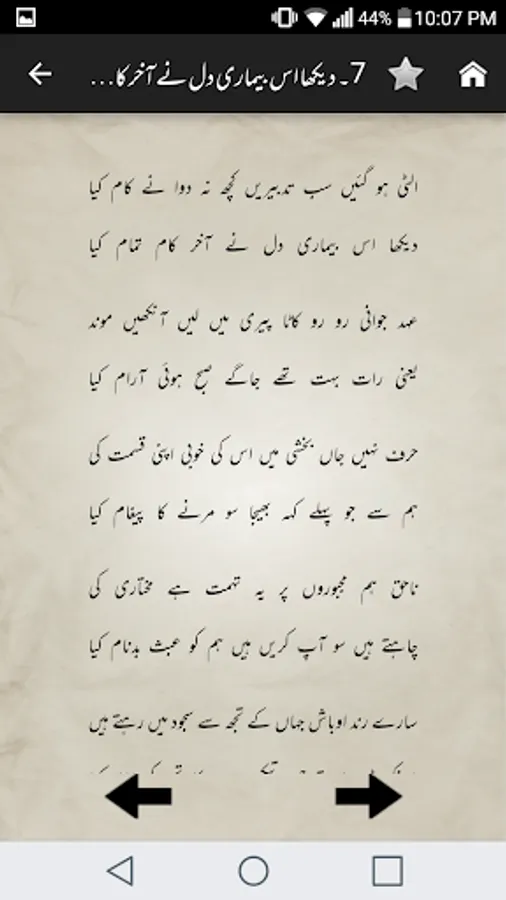 44% 10:07 PM
7۔ دیکھا اس بیماری دل نے آخر کا...
الٹی ہو گئیں سب تدبیریں کچھ نہ دوا نے کام کیا
دیکھا اس بیماری دل نے آخر کام تمام کیا
عہد جوانی رو رو کاٹا پیری میں لیں آنکھیں موند
یعنی رات بہت تھے جاگے صبح ہوئی آرام کیا
حرف نہیں جاں بخشی میں اس کی خوبی اپنی قسمت کی
ہم سے جو پہلے کہہ بھیجا سو مرنے کا پیغام کیا
ناحق ہم مجبوروں پر یہ تہمت ہے مختاری کی
چاہتے ہیں سو آپ کریں ہیں ہم کو عبث بدنام کیا
سارے رند اوباش جہاں کے تجھ سے سجود میں رہتے ہیں